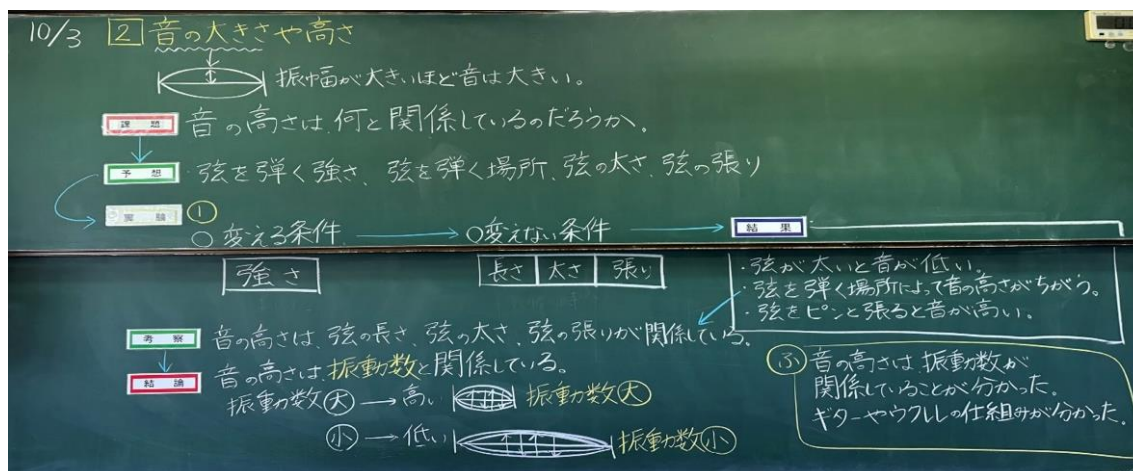 10/3 2 音の大きさや高さ
振幅が大きいほど音は大きい。
課題 音の高さは、何と関係しているのだろうか。
予想 弦を弾く強さ、弦を弾く場所、弦の太さ、弦の張り
実験 ①
○変える条件 ○変えない条件 結果
強さ 長さ 太さ 張り
・弦が太いと音が低い。
・弦を弾く場所によって音の高さがちがう。
・弦をピンと張ると音が高い。
考察 音の高さは、弦の長さ、弦の太さ、弦の張りが関係している。
結論 音の高さは、振動数と関係している。
振動数大→高い 振動数大
小→低い 振動数小
ふ 音の高さは、振動数が
関係していることが分かった。
ギターやウクレレの仕組みが分かった。